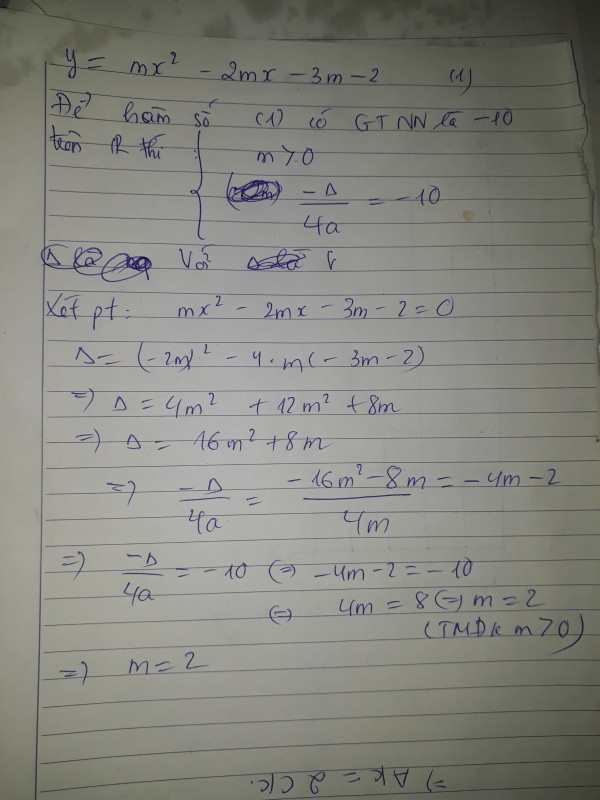 y = mx² - 2mx - 3m - 2 (1)
Để hàm số (1) có GTNN là -10
trên R thì { m > 0
-Δ/4a = -10
Với
Xét pt: mx² - 2mx - 3m - 2 = 0
Δ = (-2m)² - 4·m(-3m-2)
=> Δ = 4m² + 12m² + 8m
=> Δ = 16m² + 8m
=> -Δ/4a = -16m² - 8m/4m = -4m - 2
=> -Δ/4a = -10 (=) -4m - 2 = -10
(=) 4m = 8 (=) m = 2
(TMĐK m > 0)
=> m = 2
=> AK = 2 CK.